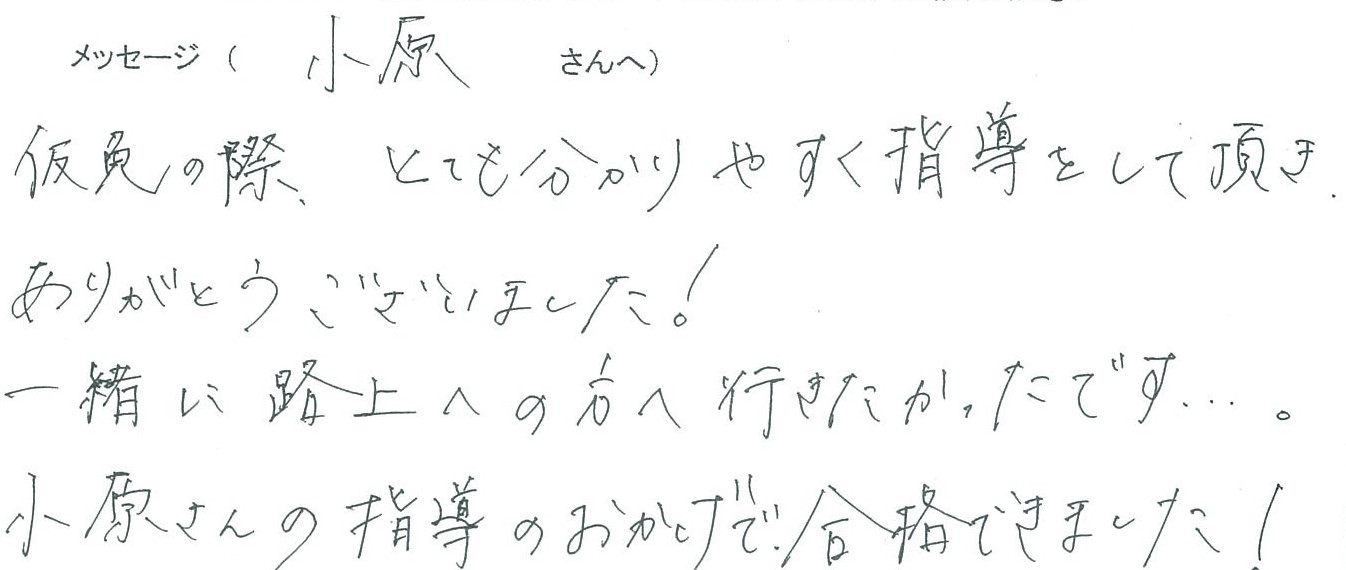 メッセージ( 小原 さんへ)
仮免の際、とても分かりやすく指導をして頂き、
ありがとうございました!
一緒に路上への方へ行きたかったです…。
小原さんの指導のおかげで合格できました!